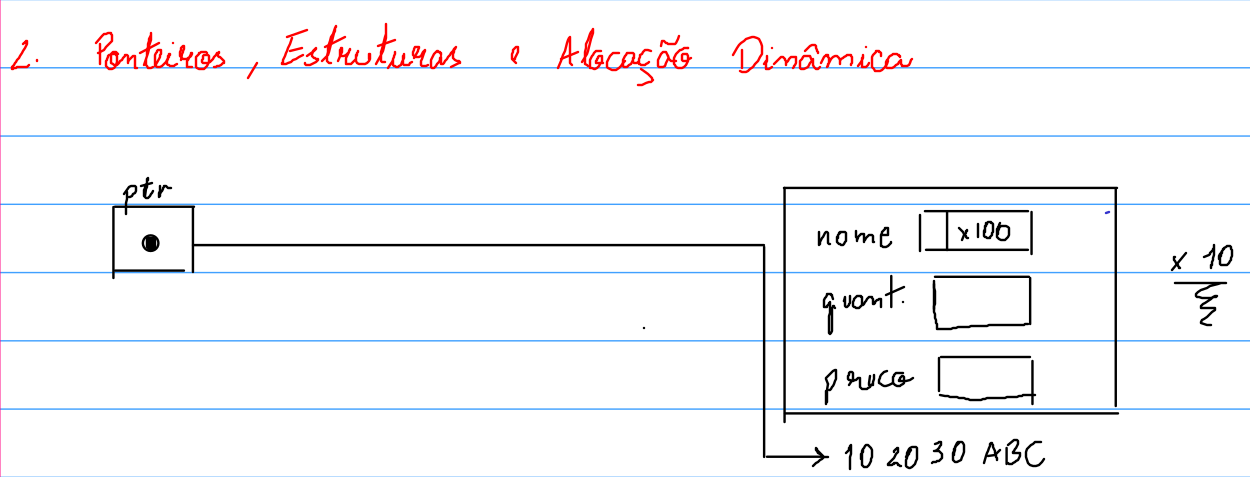 2. Ponteiros, Estruturas e Alocação Dinâmica
ptr
nome x100
quant.
x 10
preço
10 20 30 ABC